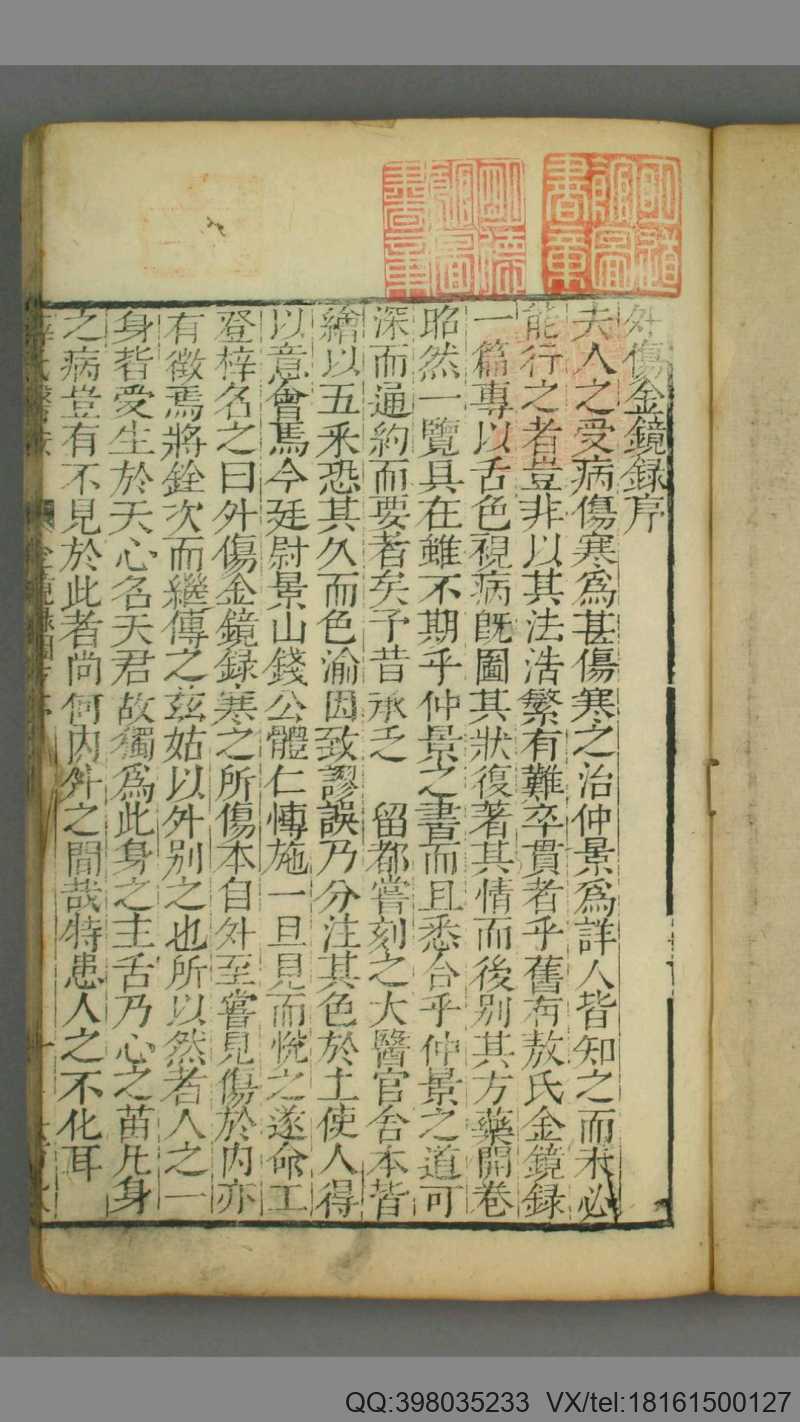 外傷金鏡録序
夫人之受病傷寒爲甚傷寒之治仲景爲詳人皆知之而未必
能行之者豈非以其法浩繁有難卒貫者乎舊有敖氏金鏡録
一篇專以舌色視病旣圖其狀復著其情而後别其方藥開卷
昭然一覽具在雖不期乎仲景之書而且悉合乎仲景之道可
深而通約而要者矣予昔承乏 留都嘗刻之太醫官舍本皆
繪以五釆恐其久而色渝因致謬誤乃分注其色於土使人得
以意會焉今廷尉景山錢公體仁慱施一旦見而悦之遂命工
登梓名之曰外傷金鏡録寒之所傷本自外至嘗見傷於内亦
有徵焉將銓次而繼傳之玆姑以外别之也所以然者人之一
身皆受生於天心名天君故獨爲此身之主舌乃心之苗凡身
之病豈有不見於此者尚何内外之間哉特患人之不化耳
QQ:398035233 VX/tel:18161500127